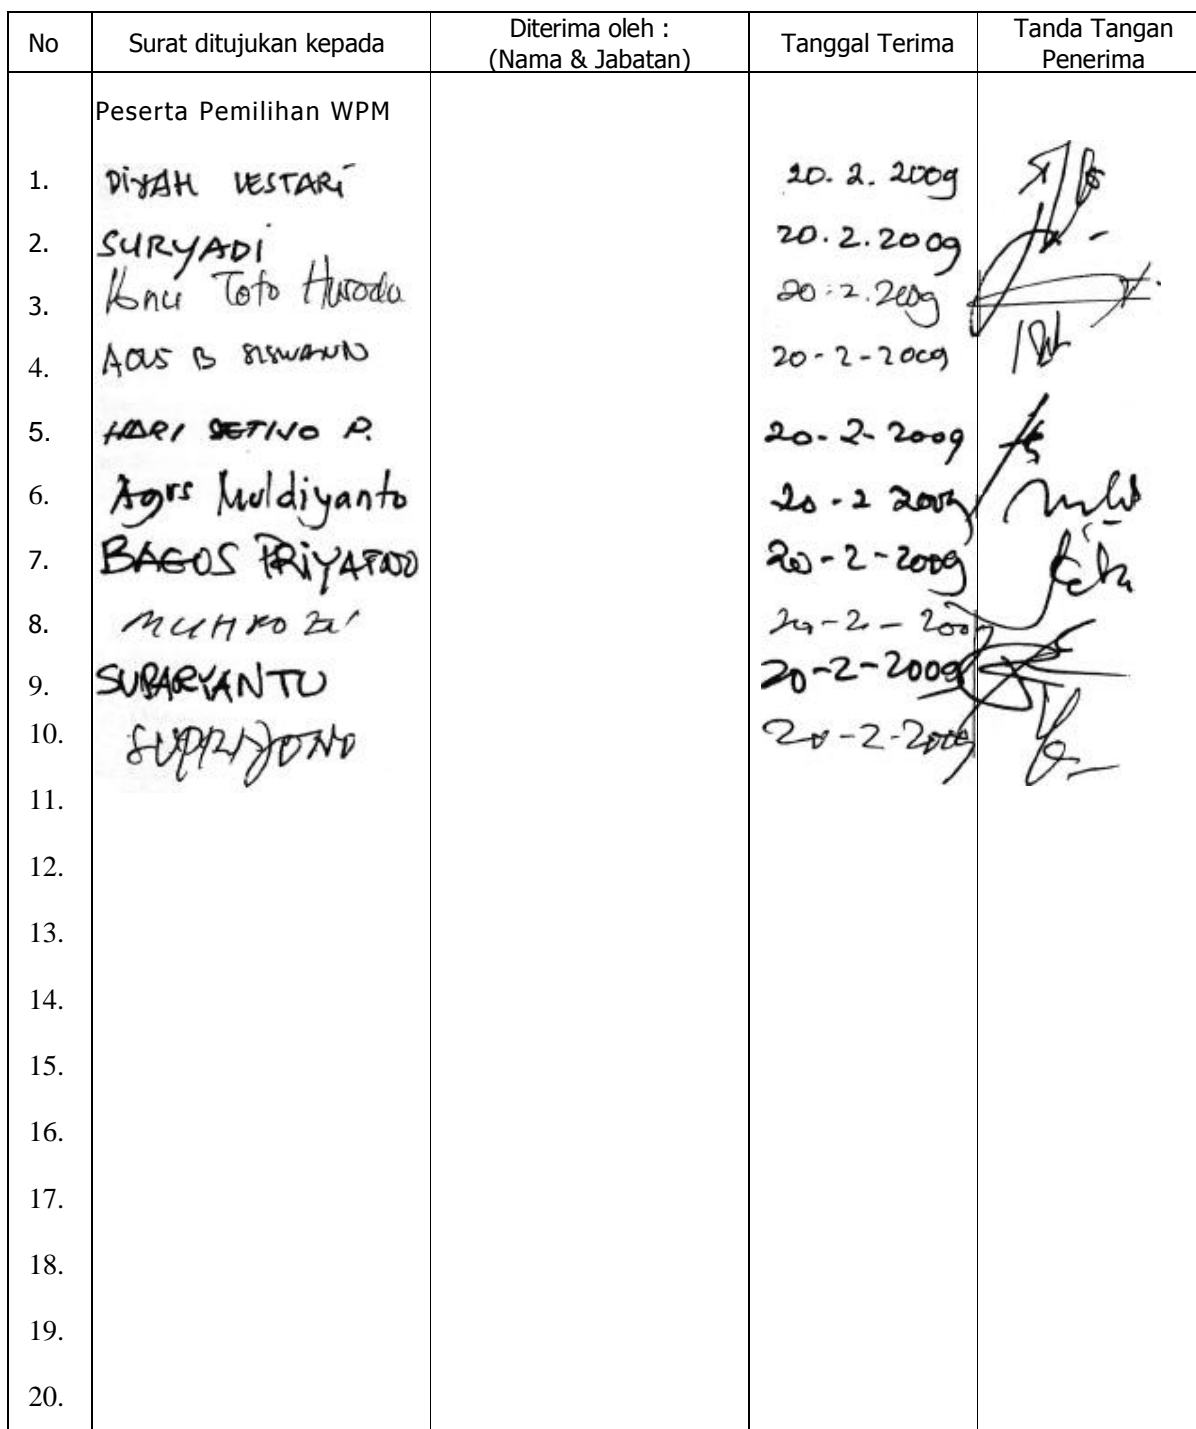 No Surat ditujukan kepada Diterima oleh : (Nama & Jabatan) Tanggal Terima Tanda Tangan Penerima
Peserta Pemilihan WPM
1. DIYAH LESTARI 20.2.2009
2. SURYADI 20.2.2009
3. Toto 20.2.2009
4. AGUS B SISWANTO 20-2-2009
5. HARI SETIYO P. 20-2-2009
6. Agus Muldiyanto 20-2 2009
7. BAGOS PRIYATNO 20-2-2009
8. 20-2-2009
9. SUPARYANTO 20-2-2009
10. SUPRIJONO 20-2-2009
11.
12.
13.
14.
15.
16.
17.
18.
19.
20.